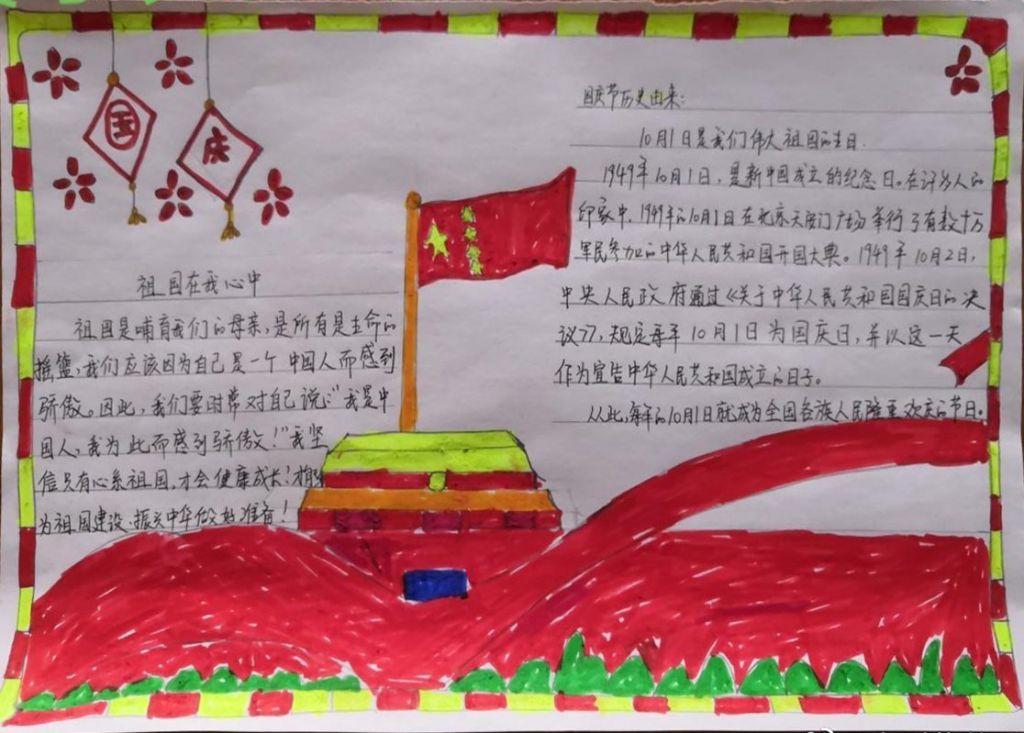 国庆
祖国在我心中
祖国是哺育我们的母亲,是所有是生命的
摇篮,我们应该因为自己是一个中国人而感到
骄傲。因此,我们要时常对自己说:"我是中
国人,我为此而感到骄傲!"我坚
信只有心系祖国,才会健康成长!才能
为祖国建设、振兴中华做好准备!
国庆节历史由来:
10月1日是我们伟大祖国的生日.
1949年10月1日,是新中国成立的纪念日。在许多人的
印象中,1949年的10月1日在北京天安门广场举行了有数十万
军民参加的中华人民共和国开国大典。1949年10月2日,
中央人民政府通过《关于中华人民共和国国庆日的决
议》,规定每年10月1日为国庆日,并以这一天
作为宣告中华人民共和国成立的日子。
从此,每年的10月1日就成为全国各族人民隆重欢庆的节日。